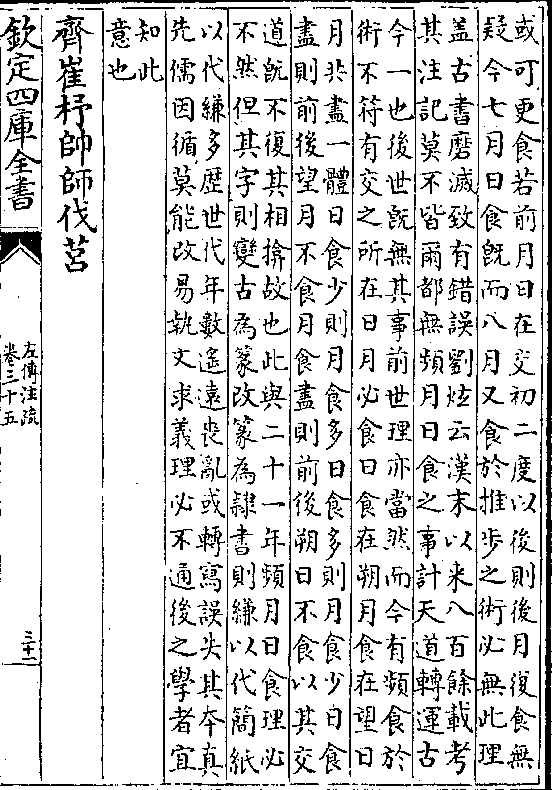 或可更食若前月日在交初二度以後則後月復食無
疑今七月日食既而八月又食於推歩之術必無此理
盖古書磨滅致有錯誤劉炫云漢末以来八百餘載考
其注記莫不皆爾都無頻月日食之事計天道轉運古
今一也後世既無其事前世理亦當然而今有頻食於
術不符有交之所在日月必食日食在朔月食在望日
月共盡一體日食少則月食多日食多則月食少日食
盡則前後望月不食月食盡則前後朔日不食以其交
道既不復其相揜故也此與二十一年頻月日食理必
不然但其字則變古為篆改篆為隷書則縑以代簡紙
以代縑多歴世代年數遙遠喪亂或轉寫誤失其夲真
先儒因循莫能改易執文求義理必不通後之學者宜
知此
意也
齊崔杼帥師伐莒
欽定四庫全書
左傳注疏
卷三十五
三十二